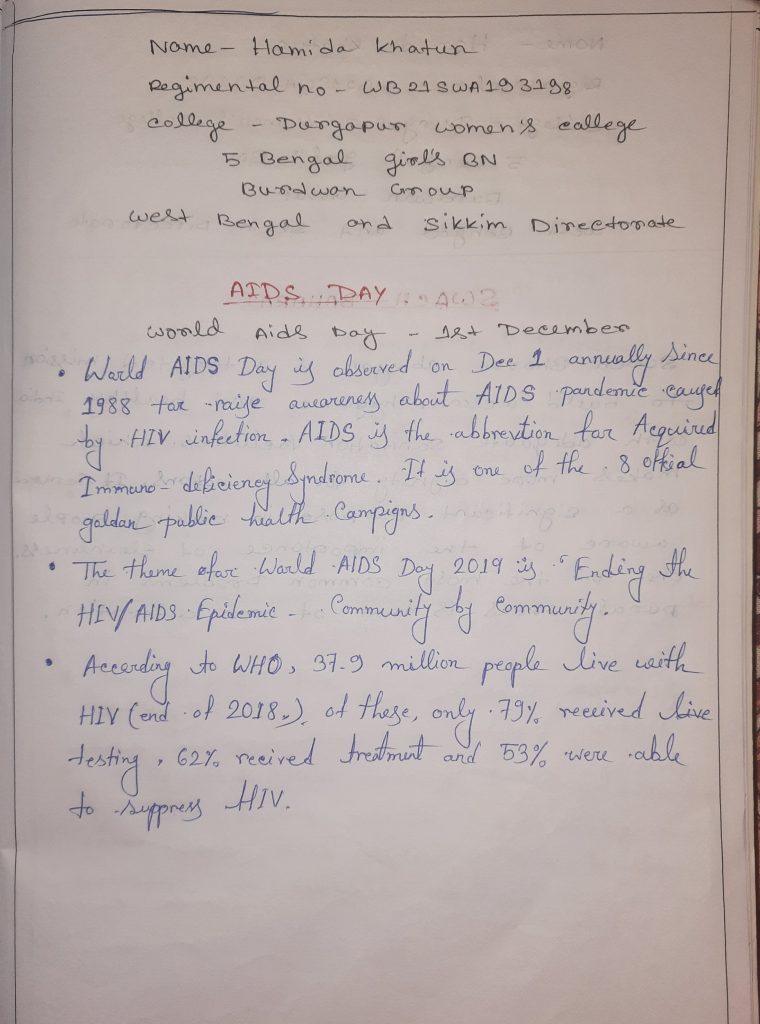 Name - Hamida Khatun
Regimental no - WB21SWA193198
College - Durgapur women's college
5 Bengal girl's BN
Burdwan Group
West Bengal and Sikkim Directorate
AIDS DAY.
World Aids Day - 1st December
• World AIDS Day is observed on Dec 1 annually since
1988 for raise awareness about AIDS pandemic caused
by HIV infection. AIDS is the abbrevtion for Acquired
Immuno-deficiency Syndrome. It is one of the 8 offcial
goldan public health Campigns.
• The theme ofor World AIDS Day 2019 is "Ending the
HIV/AIDS Epidemic - Community by Community.
• According to WHO, 37.9 million people live with
HIV (end of 2018.). of these, only 79% received live
testing, 62% recived treatment and 53% were able
to suppress HIV.